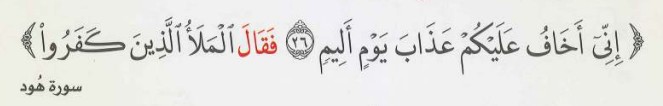 ﴿ إِنِّىٓ أَخَافُ عَلَيْكُمْ عَذَابَ يَوْمٍ أَلِيمٍ ٢٦ فَقَالَ الْمَلَأُ الَّذِينَ كَفَرُوا۟ ﴾
سورة هُود